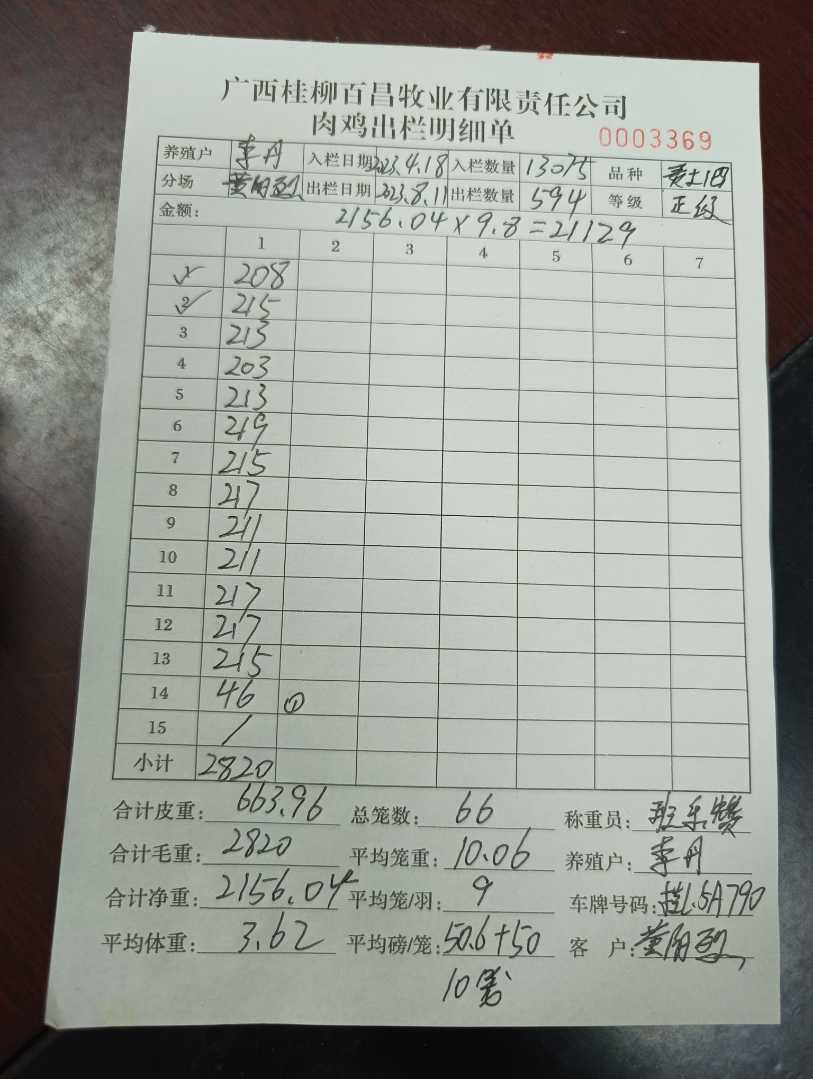 广西桂柳百昌牧业有限责任公司
肉鸡出栏明细单 0003369
养殖户 李丹 入栏日期 2023.4.18 入栏数量 13075 品种
分场 黄阳烈 出栏日期 2023.8.11 出栏数量 594 等级 正级
金额: 2156.04×9.8=21129
1 2 3 4 5 6 7
1 208
2 215
3 213
4 203
5 213
6 219
7 215
8 217
9 211
10 211
11 217
12 217
13 215
14 46 ①
15 /
小计 2820
合计皮重: 663.96 总笼数: 66 称重员:
合计毛重: 2820 平均笼重: 10.06 养殖户: 李丹
合计净重: 2156.04 平均笼/羽: 9 车牌号码: 桂L.5A790
平均体重: 3.62 平均磅/笼: 50.6+50 客户: 黄阳烈
10